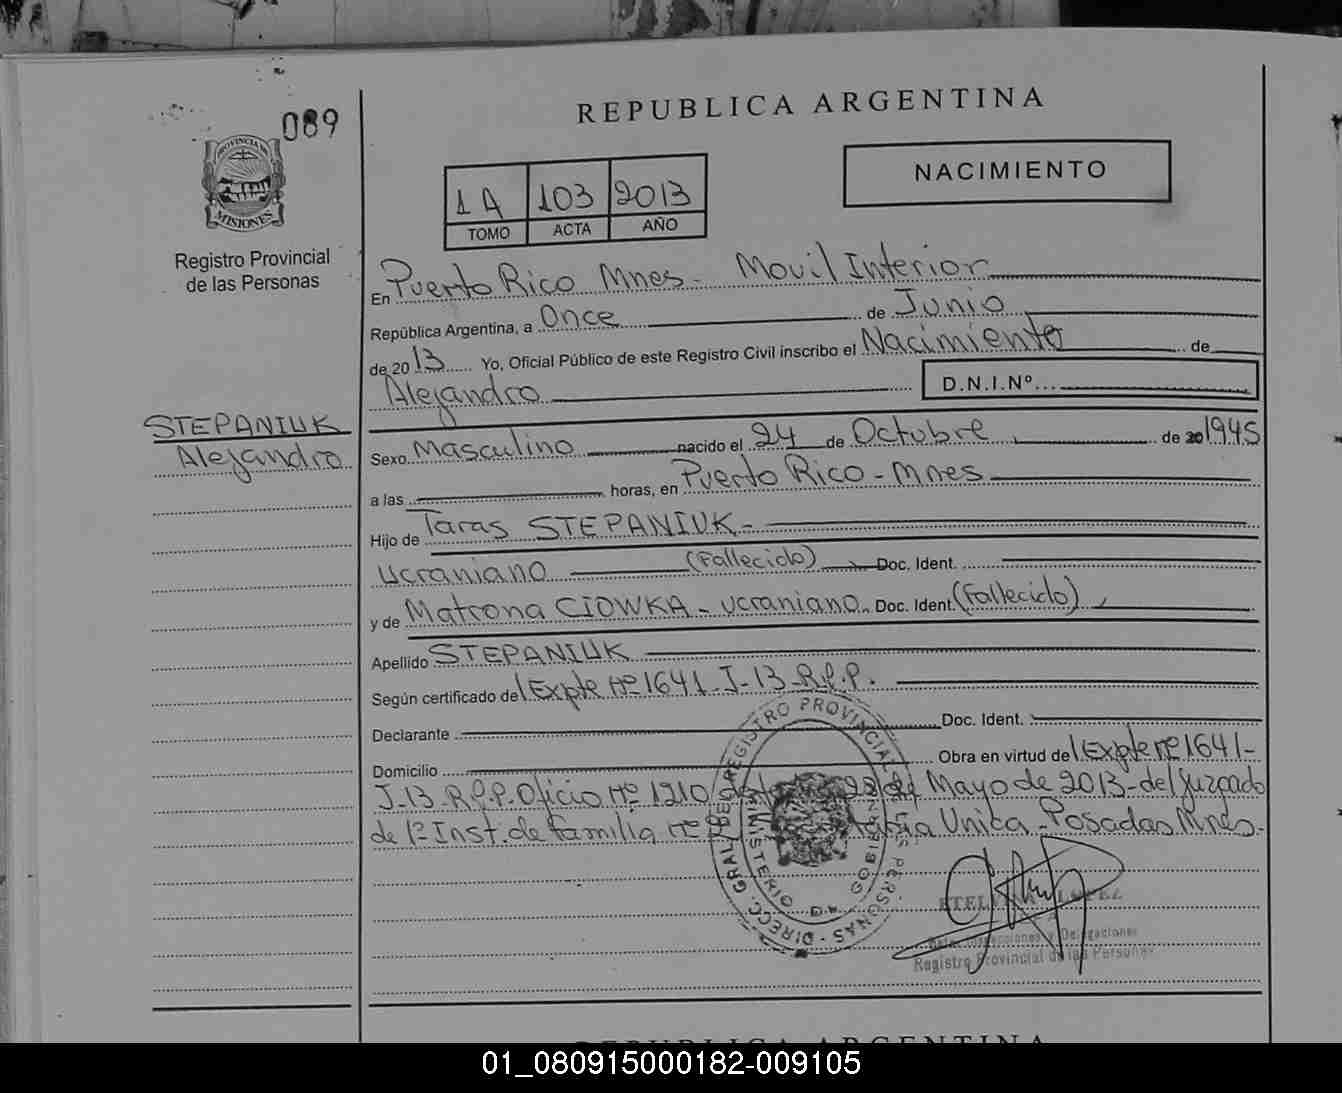 089
REPUBLICA ARGENTINA
PROVINCIA DE
MISIONES
Registro Provincial
de las Personas
1A 103 2013
TOMO ACTA AÑO
NACIMIENTO
En Puerto Rico Mnes - Movil Interior
República Argentina, a Once de Junio
de 2013 Yo, Oficial Público de este Registro Civil inscribo el Nacimiento de
Alejandro D.N.I.Nº...
STEPANIUK
Alejandro
Sexo Masculino nacido el 24 de Octubre de 20 1945
a las horas, en Puerto Rico - Mnes
Hijo de Taras STEPANIUK -
Ucraniano (Fallecido) Doc. Ident.
y de Matrona CIOWKA - ucraniano. Doc. Ident. (Fallecido)
Apellido STEPANIUK
Según certificado de Expte nº 1641-J-13-R.P.P.
Declarante Doc. Ident.
Domicilio Obra en virtud de Expte nº 1641-
J-13-R.P.P. Oficio nº 1210 de Mayo de 2013 - del Juzgado
de 1º Inst. de familia nº Unica - Posadas Mnes.-
DIRECC. GRAL. DEL REGISTRO PROVINCIAL DE LAS PERSONAS
MINISTERIO DE GOBIERNO
LOPEZ
Inspecciones y Delegaciones
Registro Provincial de las Personas
REPUBLICA ARGENTINA
01_080915000182-009105